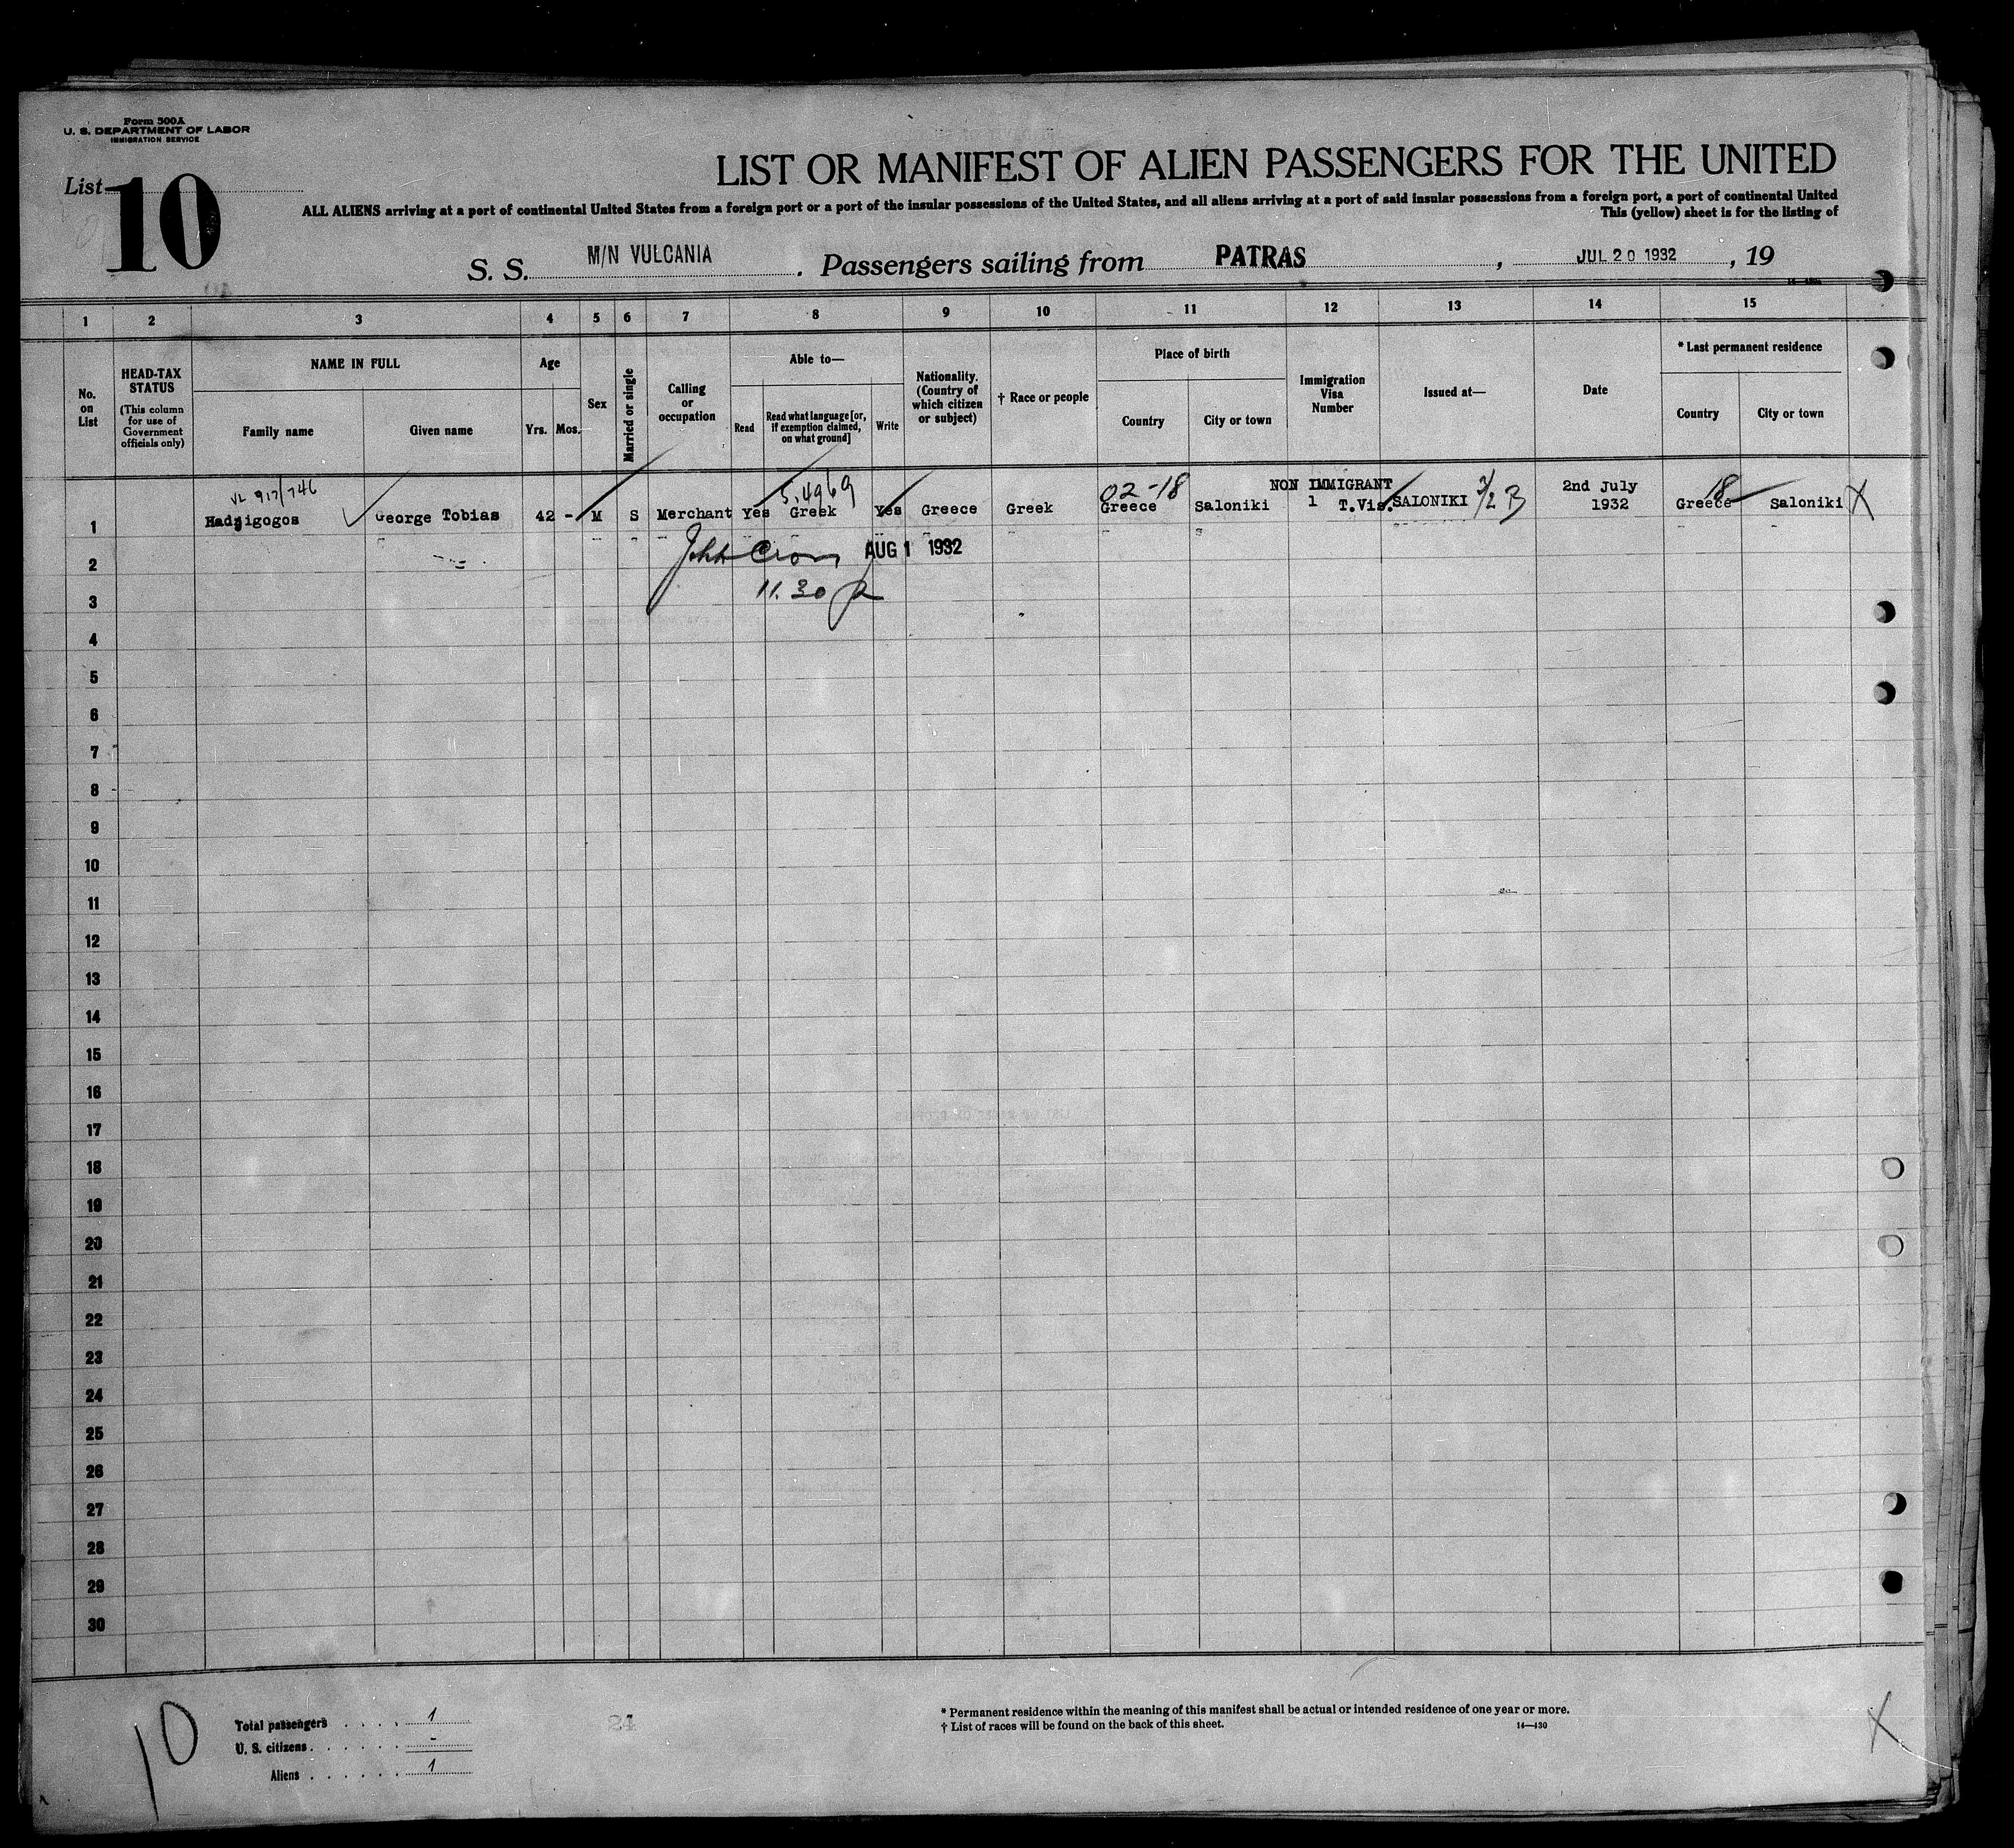 Form 500A
U. S. DEPARTMENT OF LABOR
IMMIGRATION SERVICE
List 10
LIST OR MANIFEST OF ALIEN PASSENGERS FOR THE UNITED
ALL ALIENS arriving at a port of continental United States from a foreign port or a port of the insular possessions of the United States, and all aliens arriving at a port of said insular possessions from a foreign port, a port of continental United
This (yellow) sheet is for the listing of
S. S. M/N VULCANIA. Passengers sailing from PATRAS, JUL 20 1932, 19
1 2 3 4 5 6 7 8 9 10 11 12 13 14 15
No. on List
HEAD-TAX STATUS
(This column for use of Government officials only)
NAME IN FULL
Family name
Given name
Age
Yrs. Mos.
Sex
Married or single
Calling or occupation
Able to—
Read
Read what language [or, if exemption claimed, on what ground]
Write
Nationality. (Country of which citizen or subject)
† Race or people
Place of birth
Country
City or town
Immigration Visa Number
Issued at—
Date
* Last permanent residence
Country
City or town
02-18
NON IMMIGRANT
18
1 Hadjigogos George Tobias 42 - M S Merchant Yes Greek Yes Greece Greek Greece Saloniki 1 T.Vis. SALONIKI 2nd July 1932 Greece Saloniki X
2 AUG 1 1932
3 11.30
4
5
6
7
8
9
10
11
12
13
14
15
16
17
18
19
20
21
22
23
24
25
26
27
28
29
30
10
Total passengers . . . . 1
U. S. citizens . . . . . . -
Aliens . . . . . . 1
* Permanent residence within the meaning of this manifest shall be actual or intended residence of one year or more.
† List of races will be found on the back of this sheet.
14—430
X